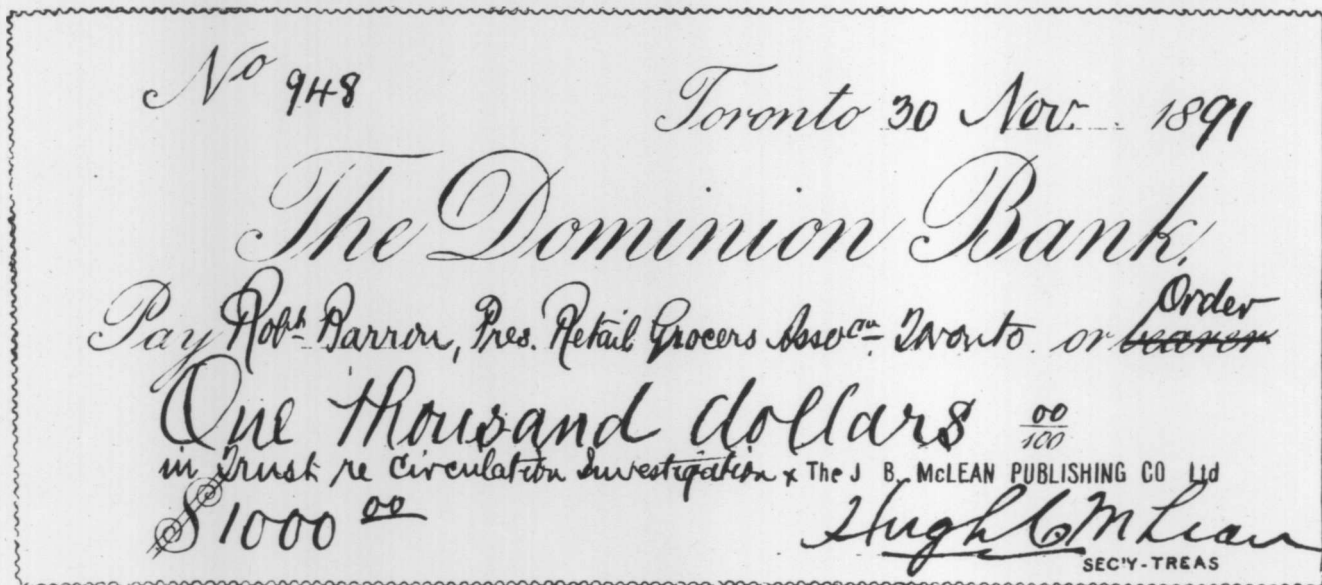 No 948
Toronto 30 Nov. 1891
The Dominion Bank.
Order
Pay Robt Barron, Pres. Retail Grocers Assocn Toronto. or bearer
One thousand dollars 00/100
in Trust re Circulation Investigation x The J B. McLEAN PUBLISHING CO Ltd
$1000 00
Hugh C McLean
SEC'Y-TREAS